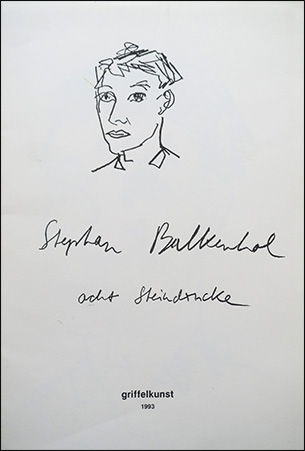 Stephan Balkenhol
acht Steindrucke
griffelkunst
1993